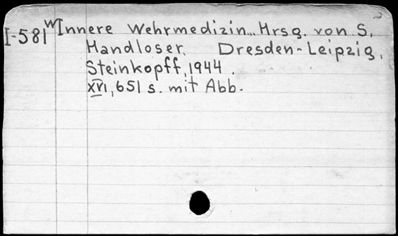 I-581 W Innere Wehrmedizin... Hrsg. von S.
Handloser. Dresden-Leipzig,
Steinkopff, 1944.
XVI, 651 s. mit Abb.